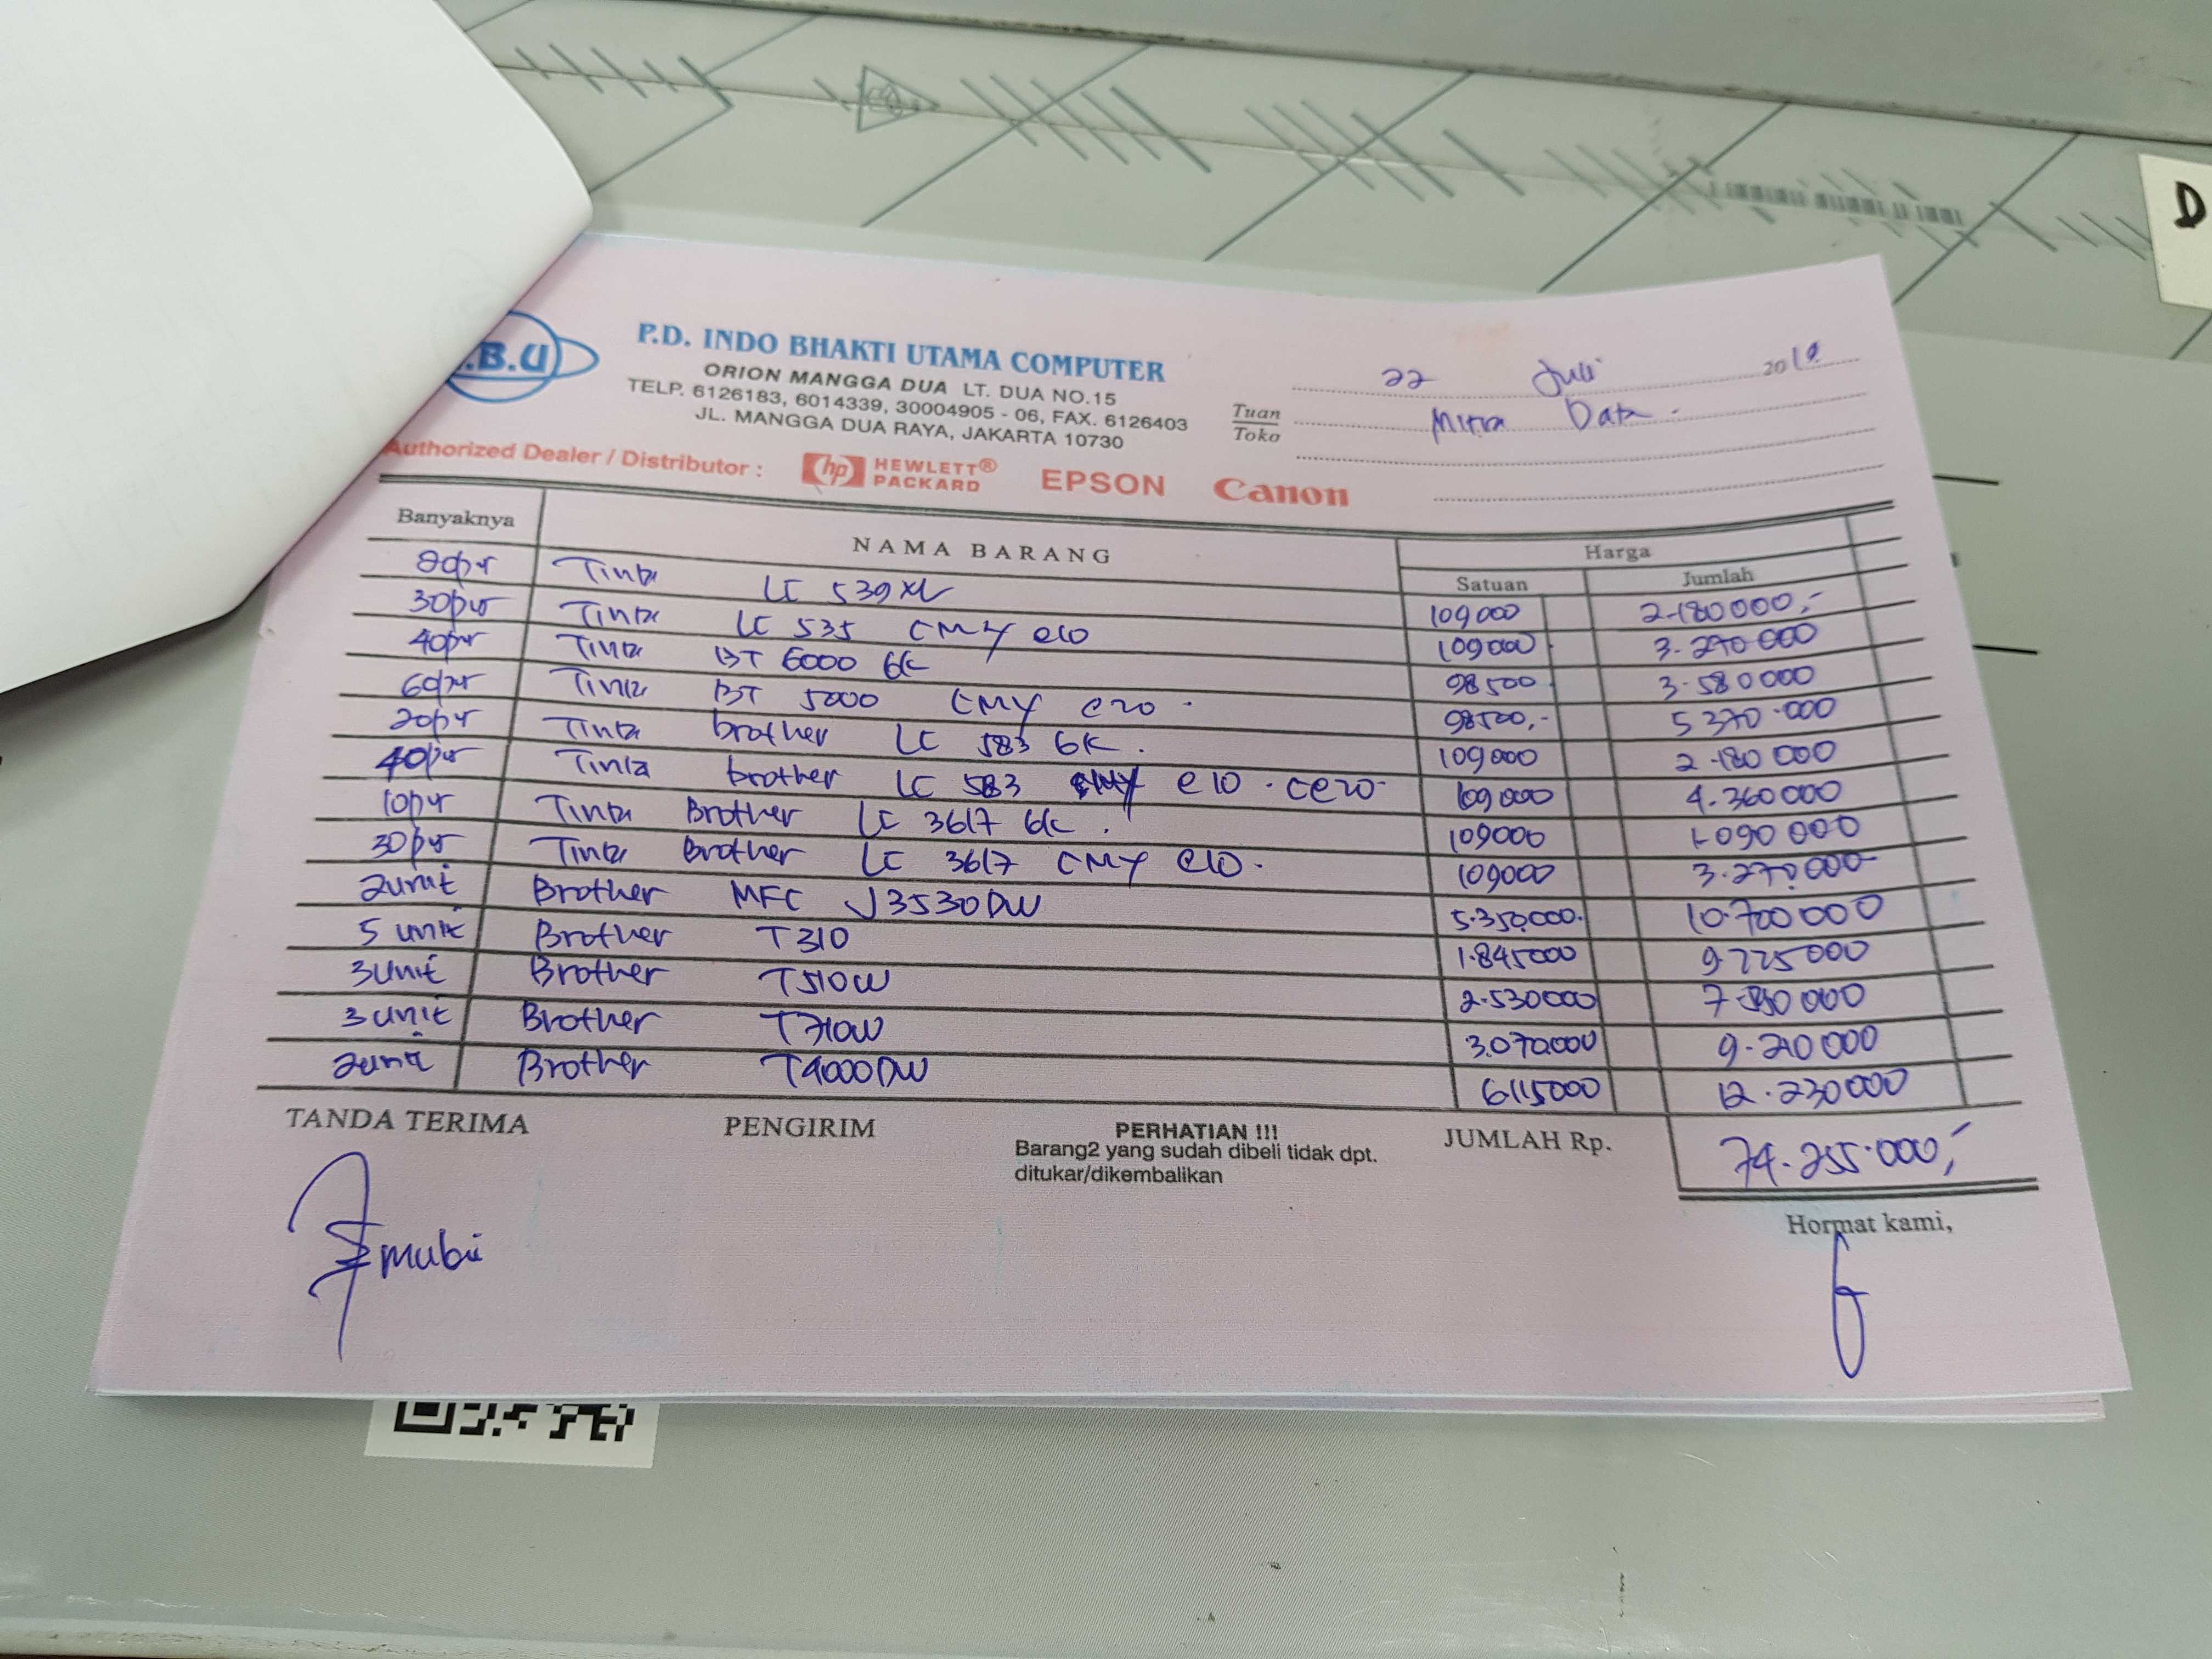 D
.B.U
P.D. INDO BHAKTI UTAMA COMPUTER
ORION MANGGA DUA LT. DUA NO.15
TELP. 6126183, 6014339, 30004905 - 06, FAX. 6126403
JL. MANGGA DUA RAYA, JAKARTA 10730
22 Juli 2019
Tuan
Toko
Mitra Data.
Authorized Dealer / Distributor : hp HEWLETT® PACKARD EPSON Canon
Banyaknya NAMA BARANG Harga
Satuan Jumlah
20pr Tinta LC 539XL 109000 2.180000,-
30pr Tinta LC 535 CMY @10 109000 3.270000
40pr Tinta BT 6000 6K 98500 3.580000
60pr Tinta BT 5000 CMY @20. 98500,- 5370.000
20pr Tinta brother LC 583 6K. 109000 2.180000
40pr Tinta brother LC 583 @10. C@20- 109000 4.360000
10pr Tinta Brother LC 3617 6K. 109000 1.090000
30pr Tinta Brother LC 3617 CMY @10. 109000 3.270.000
2unit Brother MFC J3530DW 5.350.000. 10.700000
5 unit Brother T310 1.845000 9.225000
3unit Brother T510W 2.530000 7.590000
3 unit Brother T710W 3.070.000 9.210000
2unit Brother T4000DW 6115000 12.230000
TANDA TERIMA PENGIRIM PERHATIAN !!! JUMLAH Rp. 74.255.000,-
Barang2 yang sudah dibeli tidak dpt.
ditukar/dikembalikan
Hormat kami,